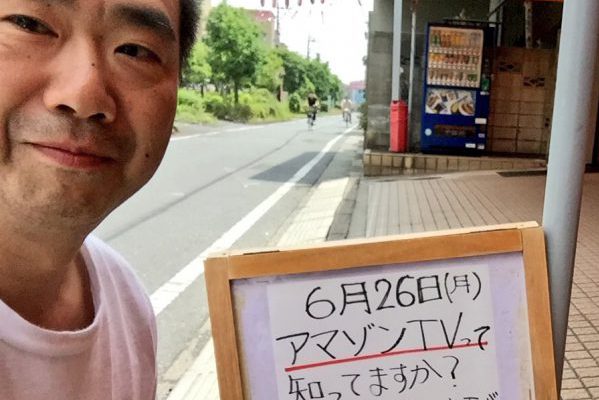 6月26日(月)
アマゾンTVって
知ってますか?